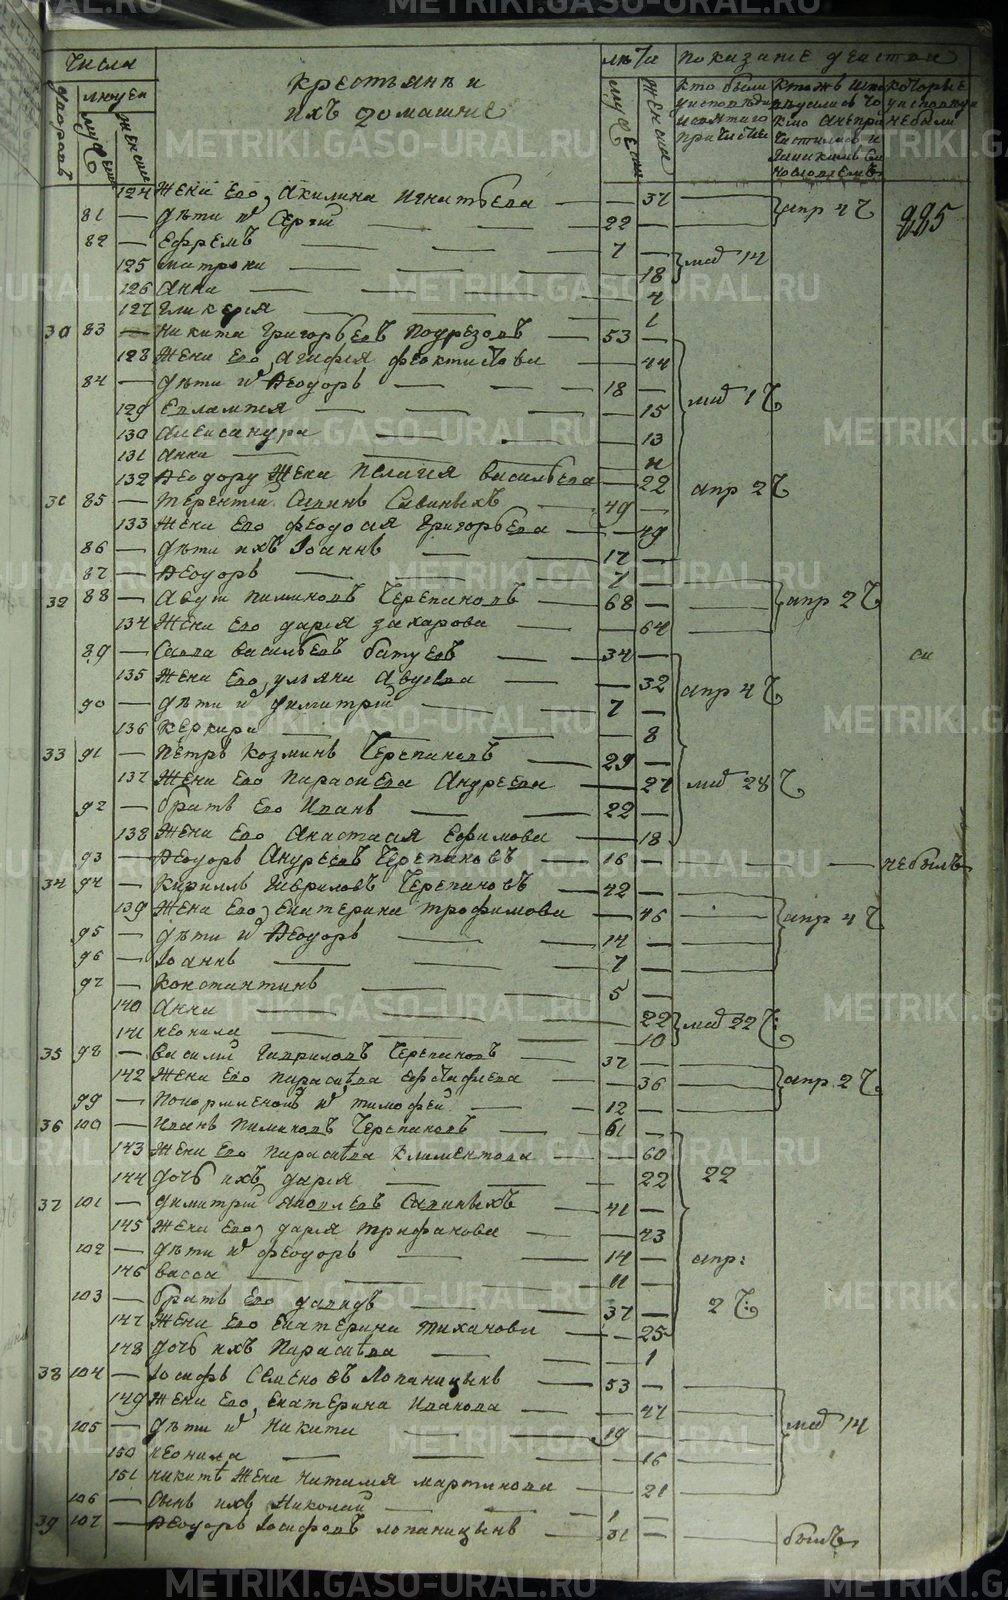 числа
крестьянѣ и ихъ домашніе
лѣта
показаніе действа
дворовъ
людеи
муж
женска
мужеска
женска
кто были у исповѣди и святаго причастія
которые у исповѣди не были
124 Жена Его, Акилина Игнатьева — — 37
апр 4
81 — дѣти их Сергій — 22 —
225
82 — Ефремъ — 7 —
125 матрона — — 18
маи 14
126 Анна — — 4
127 Гликерія — — 1
30 83 — Никита Григорьевъ Подрезовъ — 53 —
128 Жена Его, Агафія феоктистова — — 44
84 — дѣти их Ѳеодоръ — 18 —
маи 1
129 Евлампія — — 15
130 Александра — — 13
131 Анна — —
132 Ѳеодору Жена Пелагія васильева — — 22
апр 2
31 85 — терентій Савинъ Савиныхъ — 49 —
133 Жена Его феодосія Григорьева — — 49
86 — дѣти ихъ Іоаннъ — 17 —
87 — Ѳеодоръ — 7 —
32 88 — Авдѣи Пиминовъ Черепановъ — 68 —
апр 2
134 Жена Его дарія захарова — — 64
89 — Савва васильевъ батуевъ — 34 —
135 Жена Его, ульяна Авдѣева — — 32
апр 4
90 — дѣти их димитрій — 7 —
136 Керкира — — 8
33 91 — Петръ Козминъ Черепановъ — 29 —
137 Жена Его Параскева Андреева — — 27
маи 28
92 — братъ Его Иванъ — 22 —
138 Жена Его Анастасія Ефимова — — 18
93 — Ѳеодоръ Андреевъ Черепановъ — 16 — небылъ
34 94 — Кириллъ Гавриловъ Черепановъ — 42 —
139 Жена Его, Екатерина трофимова — — 46
апр 4
95 — дѣти их Ѳеодоръ — 14 —
96 — Іоаннъ — 7 —
97 — Константинъ — 5 —
140 Анна — — 22
маи 22
141 неонила — — 10
35 98 — Василій Гавриловъ Черепановъ — 37 —
142 Жена Его Параскева Евстафіева — — 36
апр 2
99 — Покормленой их тимофей — 12 —
36 100 — Иванъ Пиминовъ Черепановъ — 61 —
143 Жена Его Параскева Климентова — — 60
144 дочь ихъ дарія — — 22
22
37 101 — димитрій Яковлевъ Савиныхъ — 41 —
145 Жена Его, дарія трифанова — — 43
102 — дѣти их феодоръ — 14 —
апр:
146 васса — 11 —
103 — братъ Его давидъ — 37 —
2
147 Жена Его Екатерина тиханова — — 25
148 дочь ихъ Параскева — — 1
38 104 — Іосифъ Семеновъ Лопаницынъ — 53 —
149 Жена Его, Екатерина Иванова — — 47
маи 14
105 — дѣти их Никита — 19 —
150 неонила — — 16
151 никитѣ Жена Наталія мартинова — — 21
106 — Сынъ ихъ Николай — 1 —
39 107 — Ѳеодоръ Іосифовъ лопаницынъ — 31 — былъ
METRIKI.GASO-URAL.RU